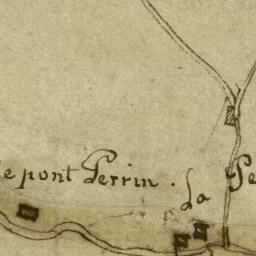 le pont Perrin.
la Pe